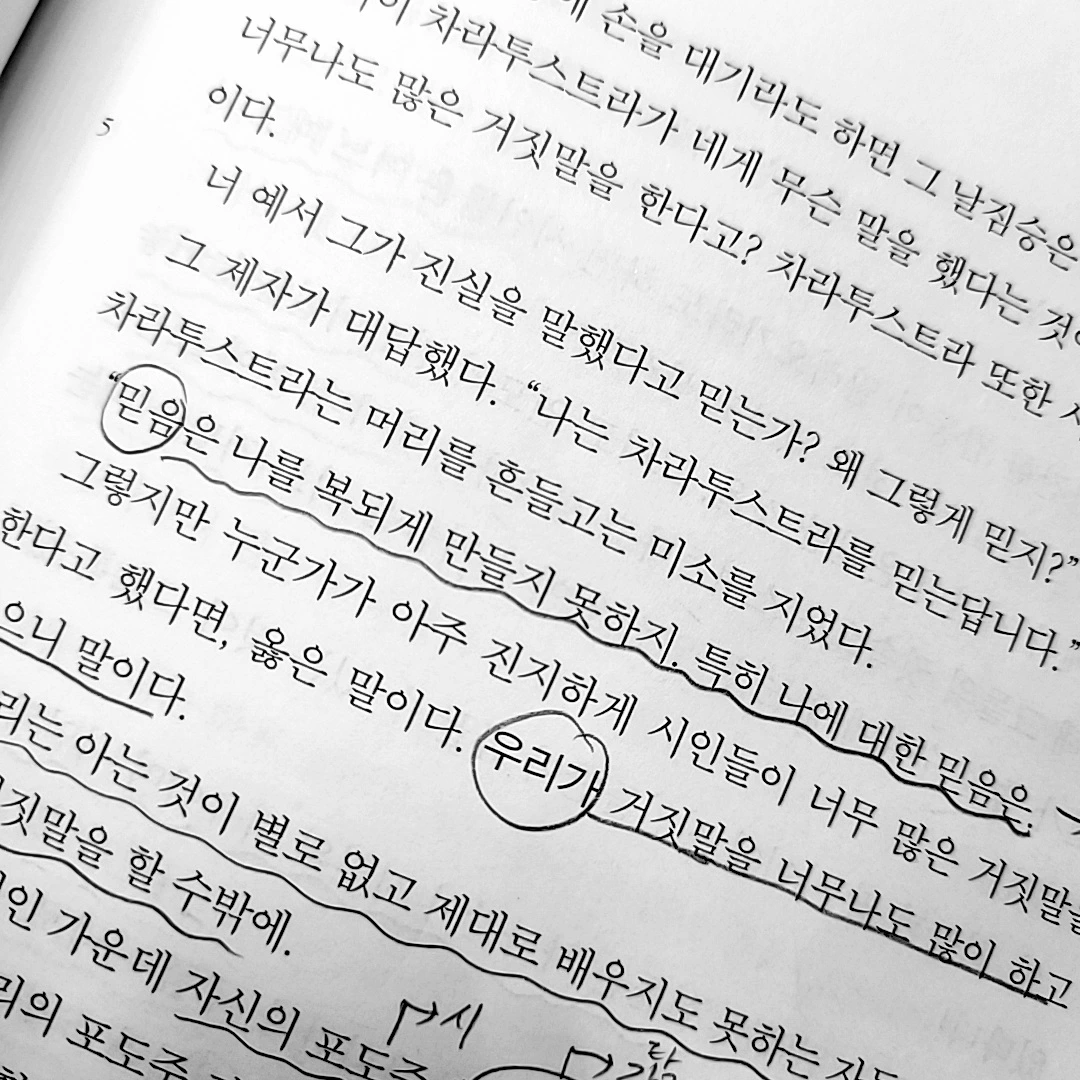 손을 대기라도 하면 그 날짐승은
차라투스트라가 네게 무슨 말을 했다는 것이
너무나도 많은 거짓말을 한다고? 차라투스트라 또한
이다.
5
너 예서 그가 진실을 말했다고 믿는가? 왜 그렇게 믿지?”
그 제자가 대답했다. “나는 차라투스트라를 믿는답니다.”
차라투스트라는 머리를 흔들고는 미소를 지었다.
“믿음은 나를 복되게 만들지 못하지. 특히 나에 대한 믿음은.
그렇지만 누군가가 아주 진지하게 시인들이 너무 많은 거짓말을
한다고 했다면, 옳은 말이다. 우리가 거짓말을 너무나도 많이 하고
으니 말이다.
리는 아는 것이 별로 없고 제대로 배우지도 못하는
거짓말을 할 수밖에.
인 가운데 자신의 포도주
→시
의 포도주